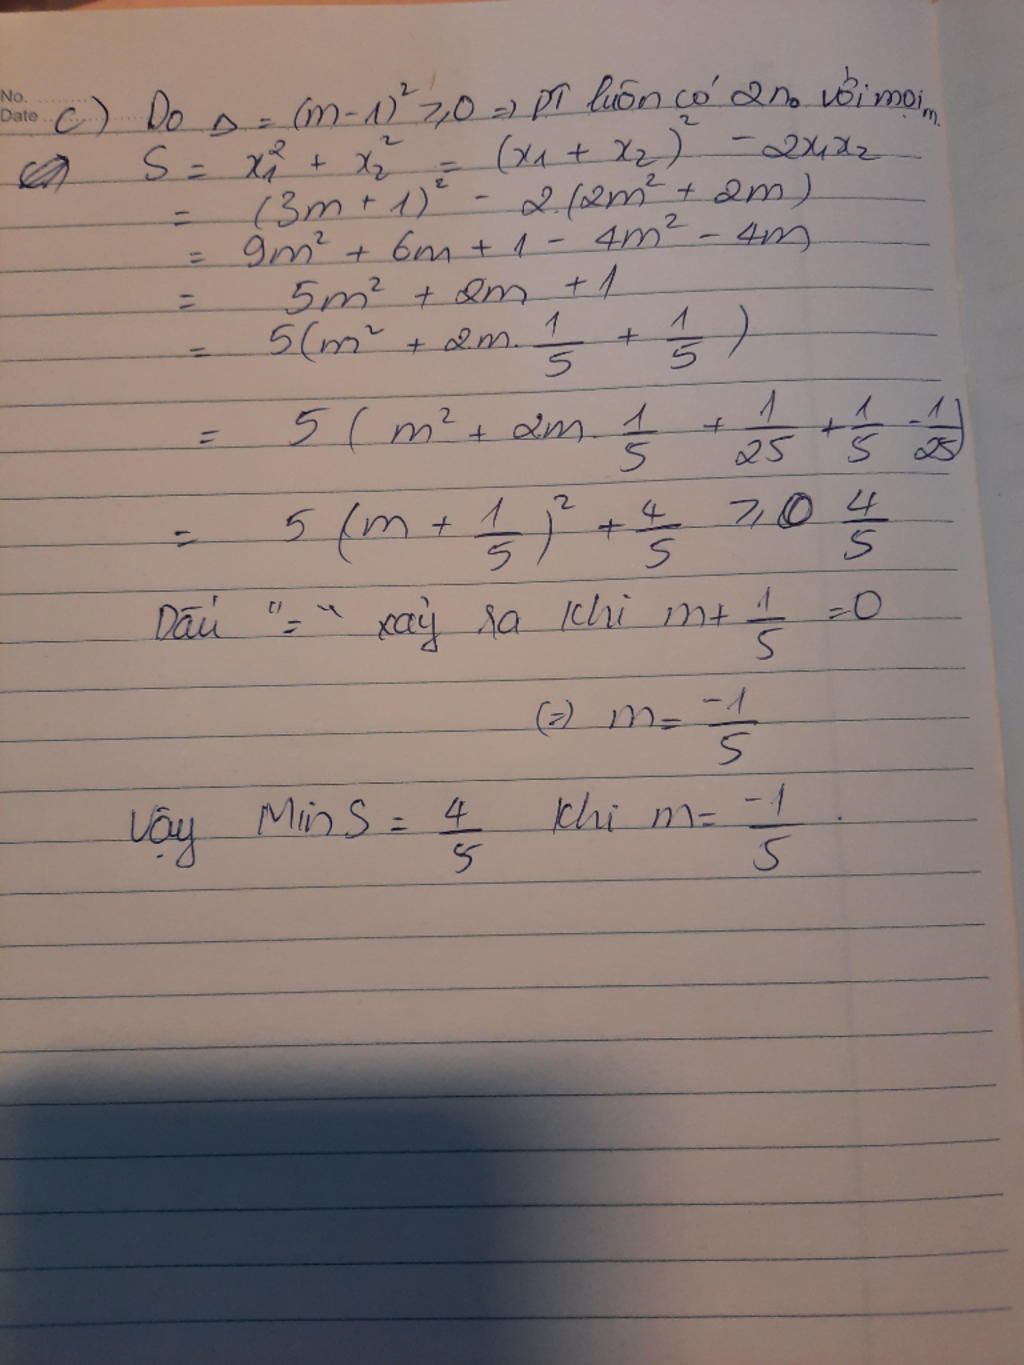 No.
Date
c) Do Δ = (m-1)² ≥ 0 => PT luôn có 2 no với mọi m.
S = x₁² + x₂² = (x₁ + x₂)² - 2x₁x₂
= (3m + 1)² - 2.(2m² + 2m)
= 9m² + 6m + 1 - 4m² - 4m
= 5m² + 2m + 1
= 5(m² + 2m. 1/5 + 1/5 )
= 5 ( m² + 2m. 1/5 + 1/25 + 1/5 - 1/25)
= 5 (m + 1/5 )² + 4/5 ≥ 4/5
Dấu "=" xảy ra khi m + 1/5 = 0
(=) m = -1/5
Vậy Min S = 4/5 khi m = -1/5 .